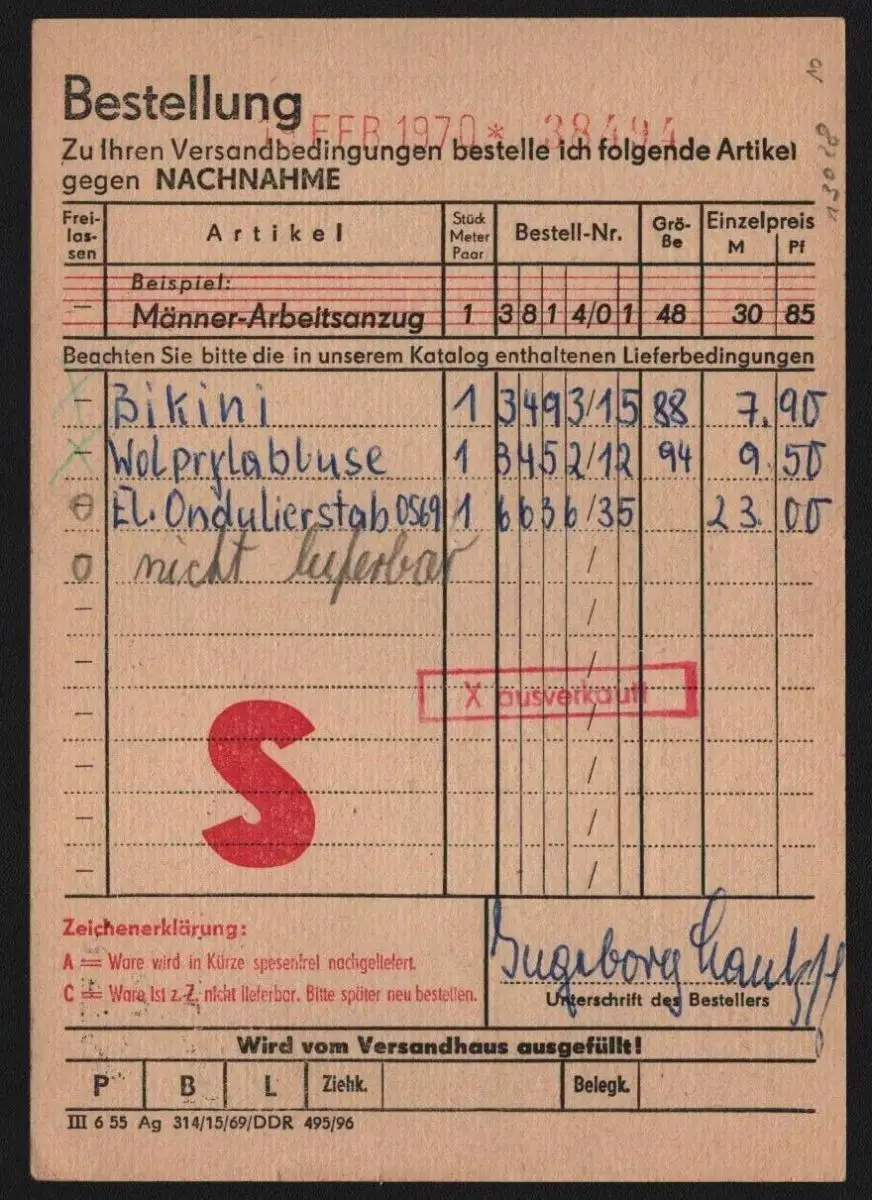 Bestellung
FEB 1970* 38494
Zu Ihren Versandbedingungen bestelle ich folgende Artikel
gegen NACHNAHME
Frei-
las-
sen
Artikel
Stück
Meter
Paar
Bestell-Nr.
Grö-
ße
Einzelpreis
M Pf
Beispiel:
– Männer-Arbeitsanzug 1 3 8 1 4/0 1 48 30 85
Beachten Sie bitte die in unserem Katalog enthaltenen Lieferbedingungen
– Bikini 1 3493/15 88 7.90
– Wolprylabluse 1 3452/12 94 9.50
El. Ondulierstab OS69 1 6636/35 23.00
nicht lieferbar /
– /
– /
X ausverkauft
– /
– /
– /
– /
S
Zeichenerklärung:
A = Ware wird in Kürze spesenfrei nachgeliefert.
C = Ware ist z. Z. nicht lieferbar. Bitte später neu bestellen.
Ingeborg
Unterschrift des Bestellers
Wird vom Versandhaus ausgefüllt!
P B L Ziehk. Belegk.
III 6 55 Ag 314/15/69/DDR 495/96